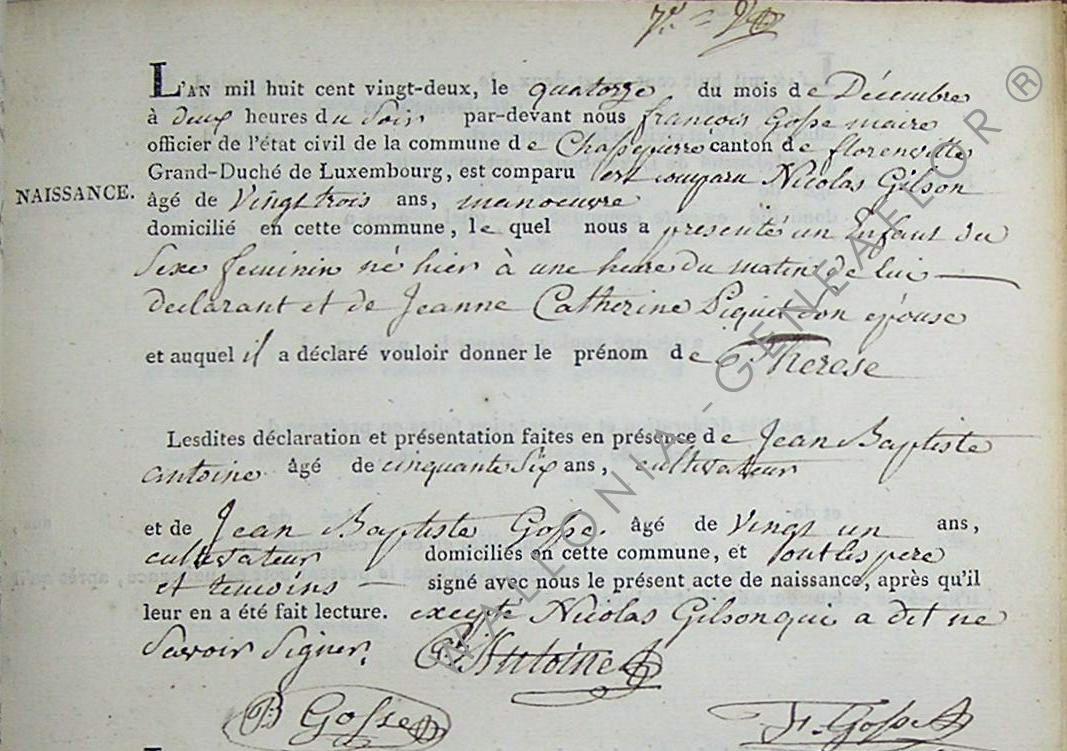 7e =
L'AN mil huit cent vingt-deux, le quatorze du mois de Décembre
à deux heures du Soir par-devant nous françois Gosse maire
officier de l'état civil de la commune de Chassepierre canton de florenville
Grand-Duché de Luxembourg, est comparu est comparu Nicolas Gilson
NAISSANCE.
âgé de Vingt trois ans, manoeuvre
domicilié en cette commune, le quel nous a présenté un Enfant du
Sexe feminin né hier à une heure du matin de lui
declarant et de Jeanne Catherine Piquet son épouse
et auquel il a déclaré vouloir donner le prénom de Therese
Lesdites déclaration et présentation faites en présence de Jean Baptiste
antoine âgé de cinquante Six ans, cultivateur
et de Jean Baptiste Gosse âgé de Vingt un ans,
cultivateur domiciliés en cette commune, et ont les pere
et temoins signé avec nous le présent acte de naissance, après qu'il
leur en a été fait lecture. excepté Nicolas Gilson qui a dit ne
Savoir Signer.
Antoine
B Gosse F. Gosse
WALLONIA - GENEAFLOR ®